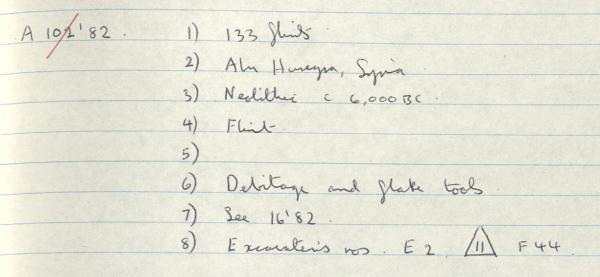 A 102'82. 1) 133 flints
2) Abu Hureyra, Syria
3) Neolithic c 6,000 BC.
4) Flint.
5)
6) Debitage and flake tools
7) See 16'82.
8) Excavator's nos. E2 11 F44